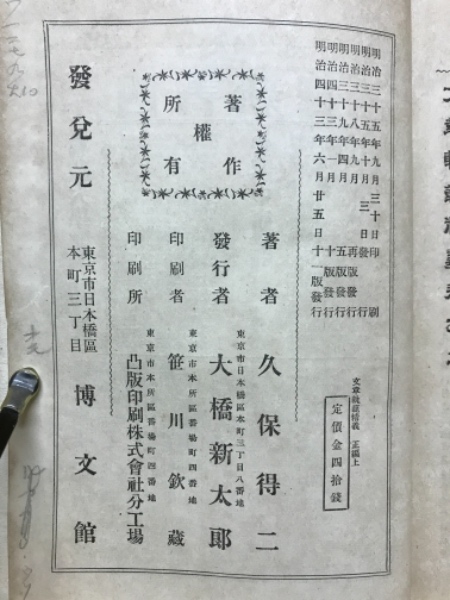 明治三十五年九月三十日印刷
明治三十五年十月三日發行
明治三十八年九月再版發行
明治三十九年四月五版發行
明治四十一年一月十版發行
明治四十三年六月廿五日十一版發行
正編上
定價金四拾錢
著作
權
所有
著者 久保得二
東京市日本橋區本町三丁目八番地
發行者 大橋新太郎
東京市本所區番場町四番地
印刷者 笹川欽藏
東京市本所區番場町四番地
印刷所 凸版印刷株式會社分工場
東京市日本橋區
本町三丁目
發兌元 博文館